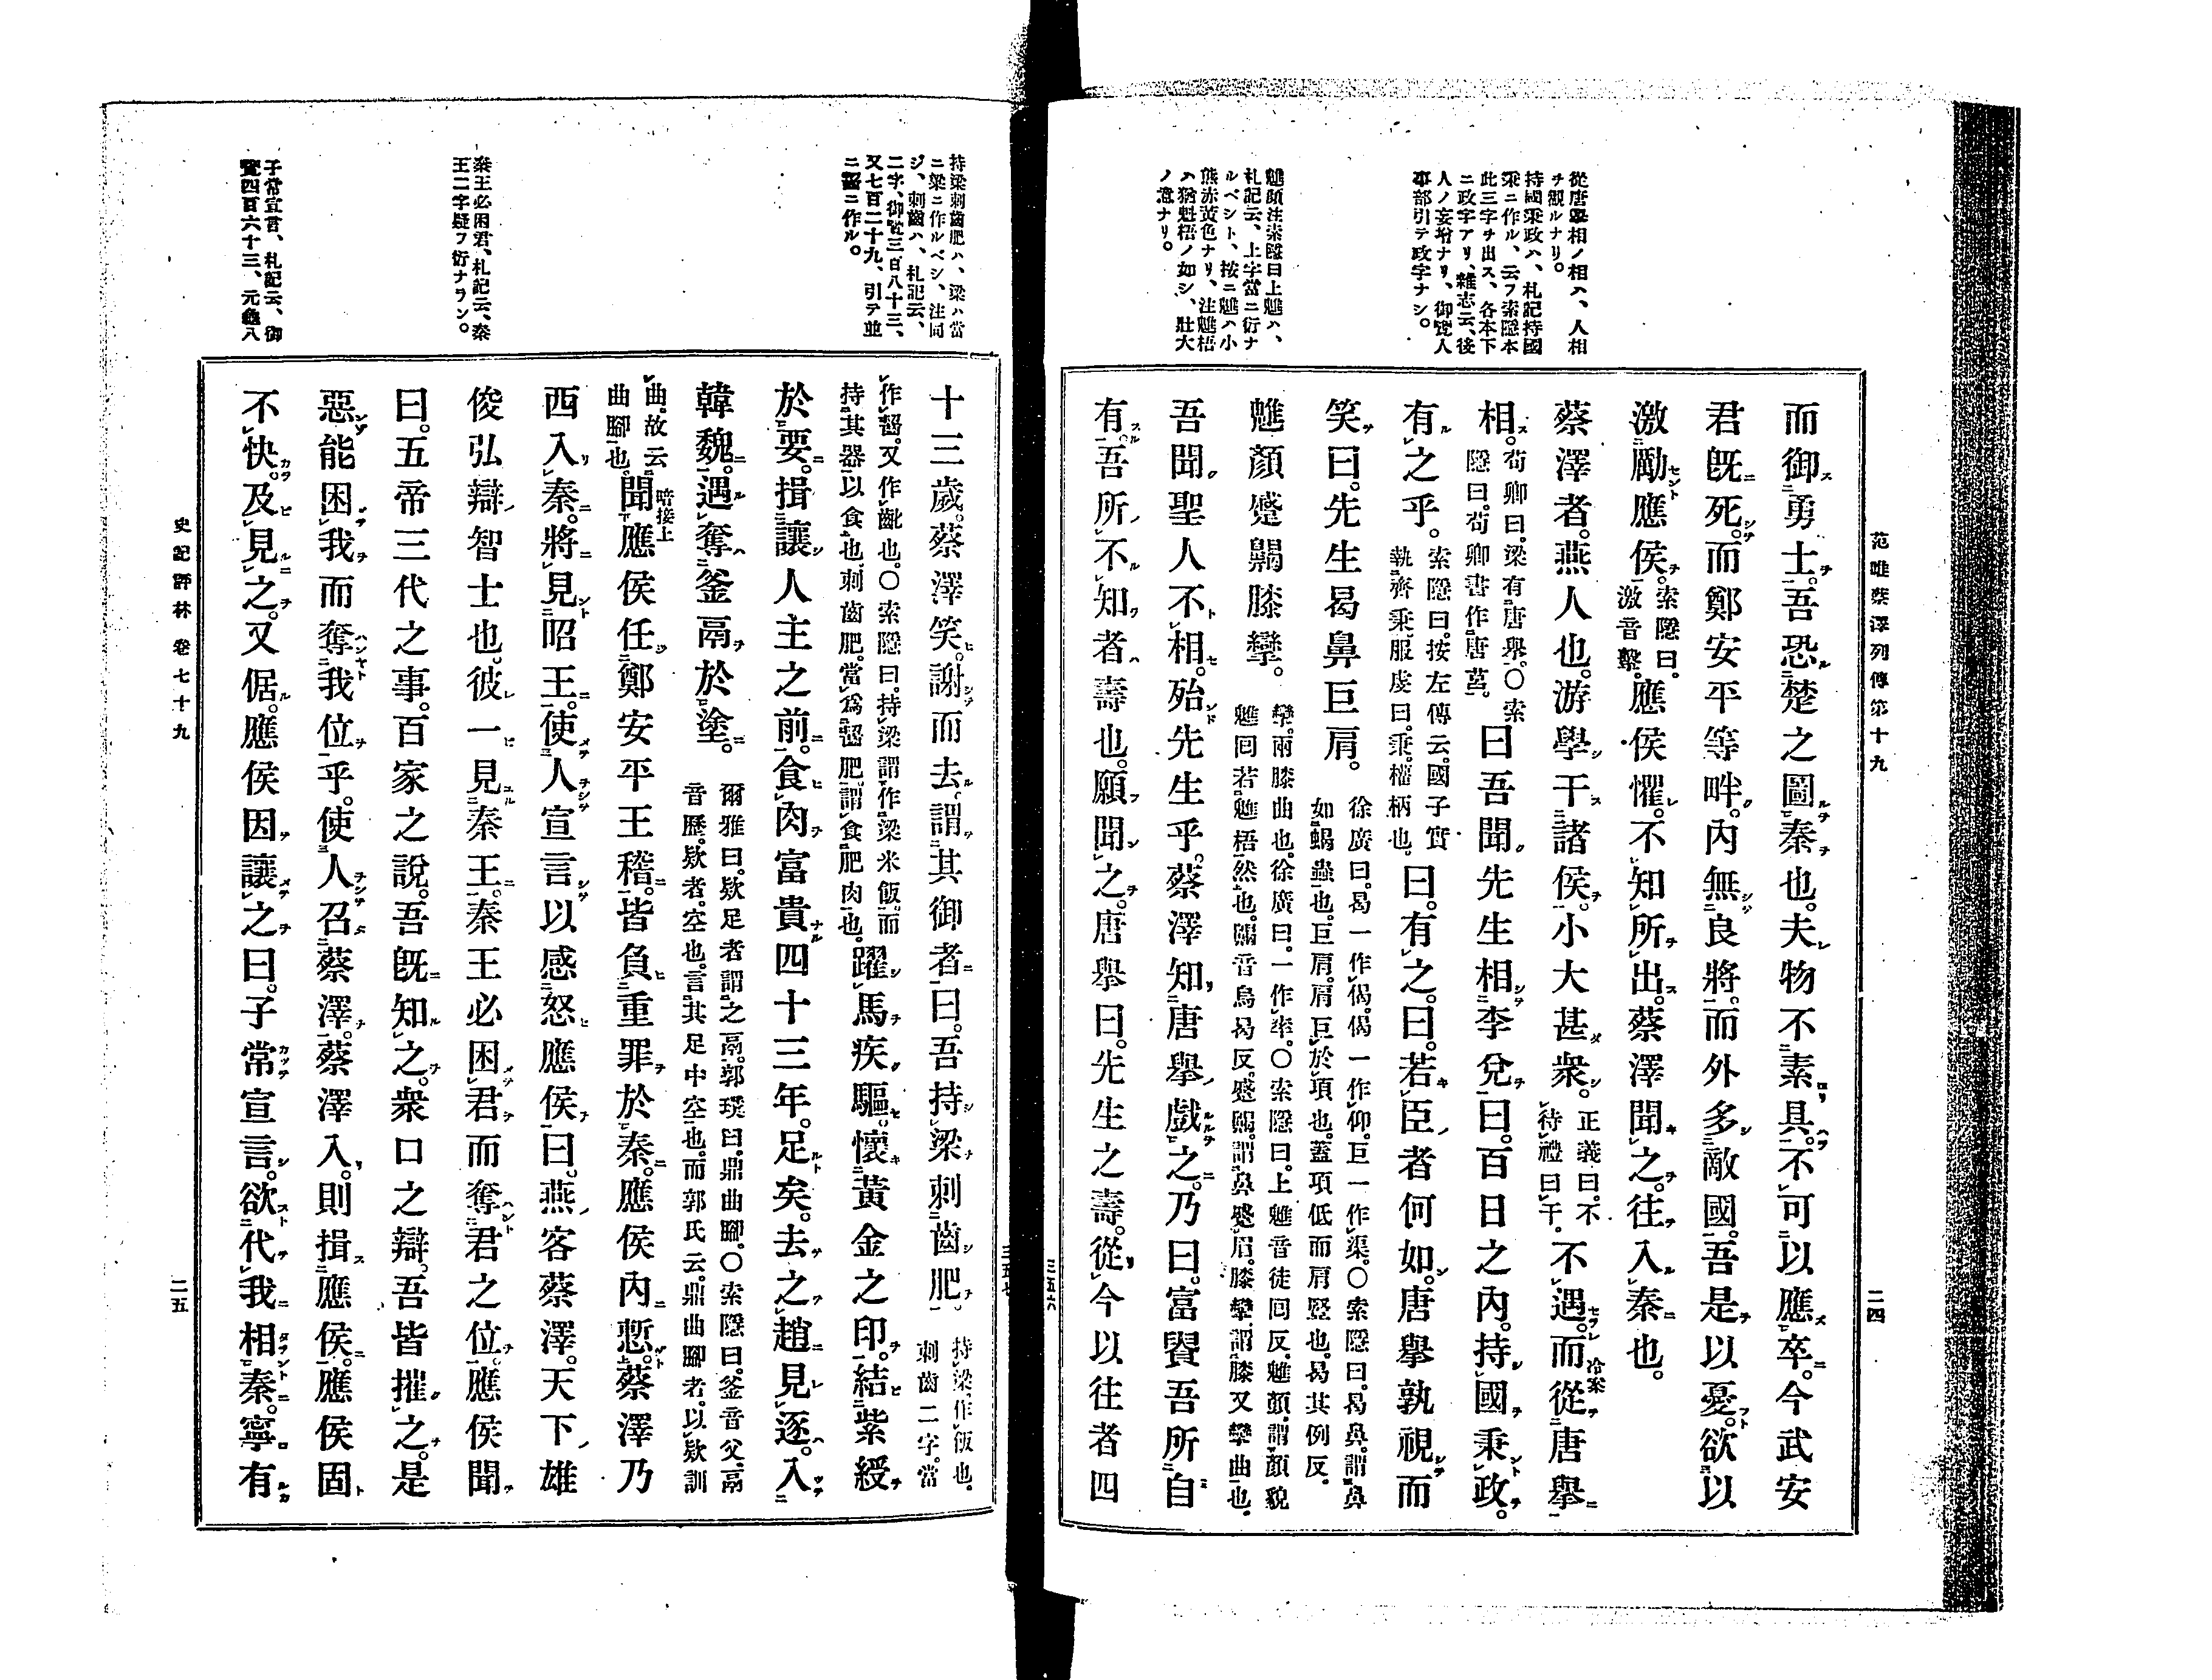 范雎蔡澤列傳第十九
二四
三五六
從唐擧相ノ相ハ、人相
ヲ觀ルナリ。
持國秉政ハ、札記持國
秉ニ作ル、云フ索隱本
此三字ヲ出ス、各本下
ニ政字アリ、雜志云、後
人ノ妄增ナリ、御覽人
事部引テ政字ナシ。
魋顏注索隱曰上魋ハ、
札記云、上字當ニ衍ナ
ルベシト、按ニ魋ハ小
熊赤黃色ナリ、注魋梧
ハ猶魁梧ノ如シ、壯大
ノ意ナリ。
而御勇士。吾恐楚之圖秦也。夫物不素具。不可以應卒。今武安
君既死。而鄭安平等畔。內無良將。而外多敵國。吾是以憂。欲以
激勵應侯。索隱曰。激音擊。應侯懼。不知所出。蔡澤聞之。往入秦也。
蔡澤者。燕人也。游學干諸侯。小大甚衆。正義曰。不待禮曰干。不遇。冷案而從唐擧
相。荀卿曰。梁有唐擧。〇索隱曰。荀卿書作唐莒。曰吾聞先生相李兌曰。百日之內。持國秉政。
有之乎。索隱曰。按左傳云。國子實執齊秉。服虔曰。秉。權柄也。曰。有之。曰。若臣者何如。唐擧孰視而
笑曰。先生曷鼻巨肩。徐廣曰。曷一作偈。偈一作仰。巨一作渠。〇索隱曰。曷鼻。謂鼻如蝎蟲也。巨肩。肩巨於項也。蓋項低而肩竪也。曷其例反。
魋顏蹙齃膝攣。攣。兩膝曲也。徐廣曰。一作率。〇索隱曰。上魋音徒回反。魋顏。謂顏貌魋回若魋梧然也。齃音烏曷反。蹙齃。謂鼻蹙眉。膝攣。謂膝又攣曲也。
吾聞聖人不相。殆先生乎。蔡澤知唐擧戲之。乃曰。富貴吾所自
有。吾所不知者壽也。願聞之。唐擧曰。先生之壽。從今以往者四
持梁刺齒肥ハ、梁ハ當
ニ粱ニ作ルベシ、注同
ジ、刺齒ハ、札記云、
二字、御覽三百八十三、
又七百二十九、引テ並
ニ齧ニ作ル。
秦王必困君、札記云、秦
王二字疑フ衍ナラン。
子常宣言、札記云、御
覽四百六十三、元龜八
十三歲。蔡澤笑。謝而去。謂其御者曰。吾持梁刺齒肥。持梁、作飯也。刺齒二字。當
作齧。又作齔也。〇索隱曰。持梁謂作粱米飯。而持其器以食也。刺齒肥。當爲齧肥。謂食肥肉也。躍馬疾驅。懷黃金之印。結紫綬
於要。揖讓人主之前。食肉富貴四十三年。足矣。去之趙見逐。入
韓魏。遇奪釜鬲於塗。爾雅曰。款足者謂之鬲。郭璞曰。鼎曲腳。〇索隱曰。釜音父。鬲音歷。款者。空也。言其足中空也。而郭氏云。鼎曲腳者。以款訓
曲。故云曲腳也。聞暗接上應侯任鄭安平王稽。皆負重罪於秦。應侯內慙。蔡澤乃
西入秦。將見昭王。使人宣言以感怒應侯曰。燕客蔡澤。天下雄
俊弘辯智士也。彼一見秦王。秦王必困君而奪君之位。應侯聞
曰。五帝三代之事。百家之說。吾既知之。衆口之辯。吾皆摧之。是
惡能困我而奪我位乎。使人召蔡澤。蔡澤入。則揖應侯。應侯固
不快。及見之。又倨。應侯因讓之曰。子常宣言。欲代我相秦。寧有
史記評林 卷七十九
二五
三五七